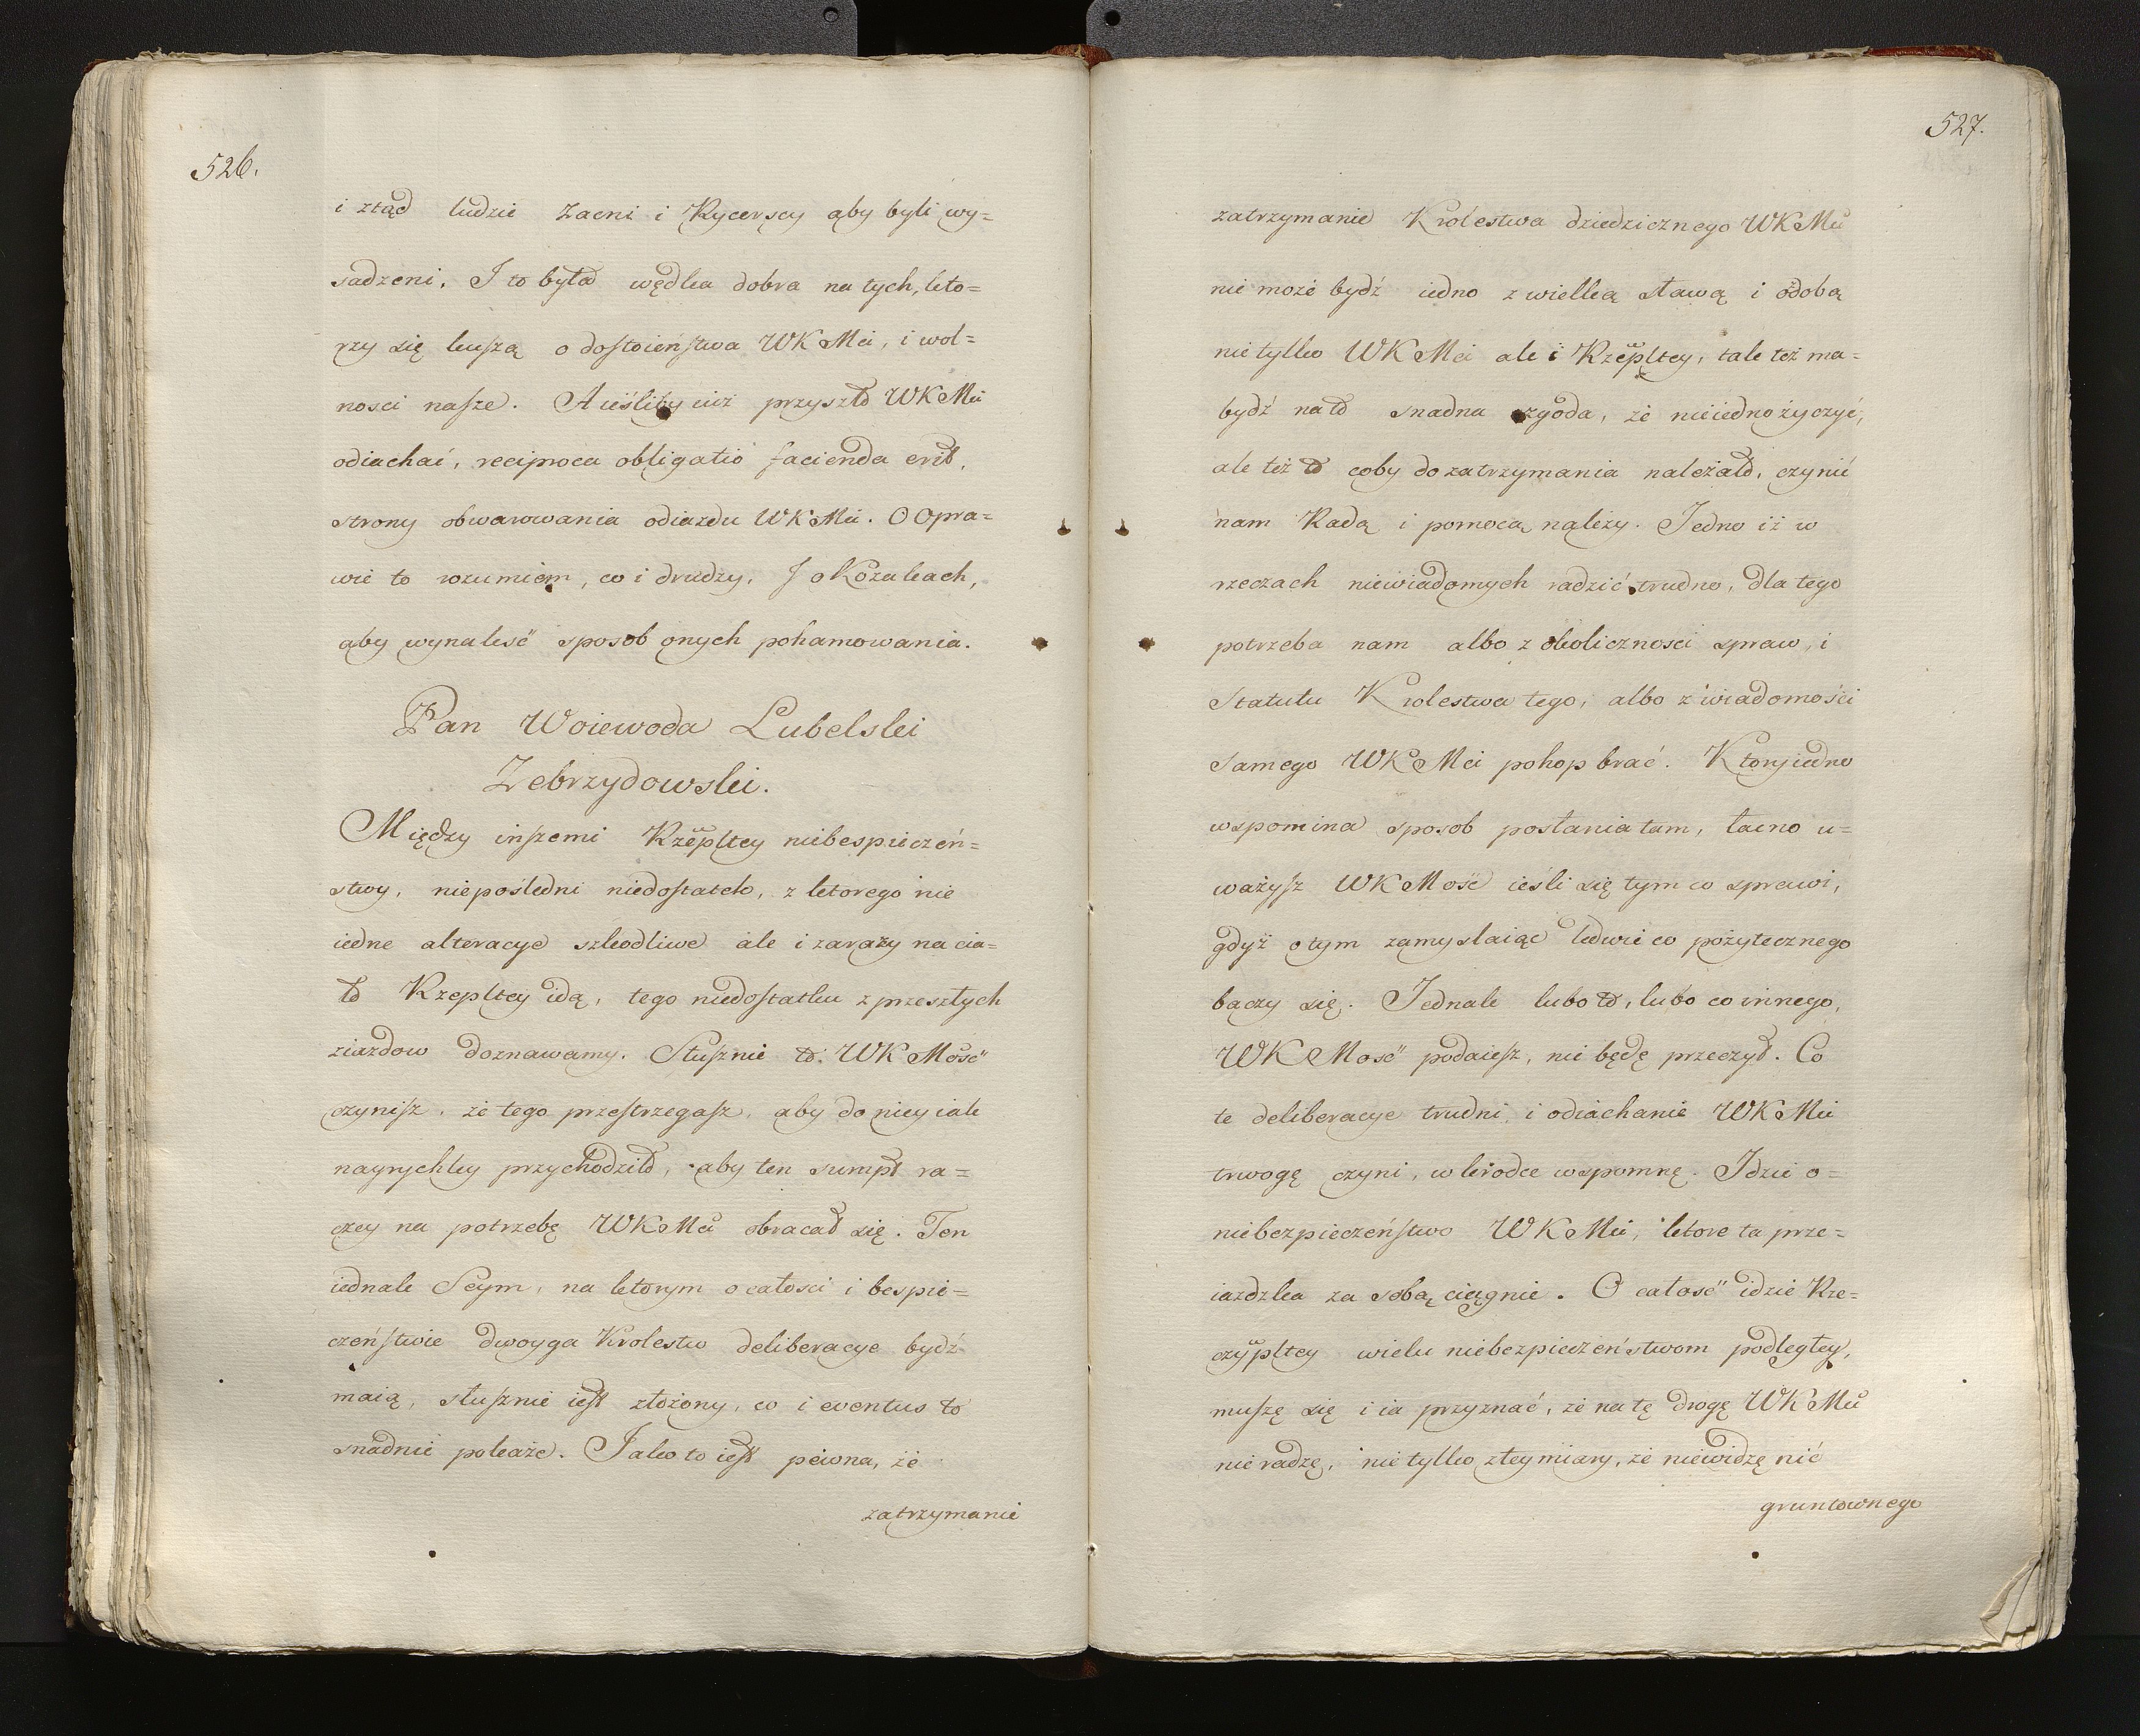 526.
i ztąd ludzie Zacni i Rycerscy aby byli wy=
sadzeni. I to była wędka dobra na tych, kto=
rzy się kuszą o dostoieństwa WKMci, i wol=
nosci nasze. A ieśliby iuż przyszło WKMci
odiachać, reciproca obligatio facienda erit,
strony obwarowania odiazdu WKMci. O Opra=
wie to rozumiem, co i drudzy. I o Kozakach,
aby wynaleść sposob onych pohamowania.
Pan Woiewoda Lubelski
Zebrzydowski.
Między inszemi Rzeplltey niebespieczeń=
stwy, niepośledni niedostatek, z ktorego nie
iedne alteracye szkodliwe ale i zarazy na cia=
ło Rzepltey idą, tego niedostatku z przeszłych
ziazdow doznawamy. Słusznie to WKMość
czynisz, że tego przestrzegasz, aby do niey iak
nayrychley przychodziło, aby ten sumpt ra=
czey na potrzebę WKMci obracał się. Ten
iednak Seym, na ktorym o całosci i bespie=
czeństwie dwoyga Krolestw deliberacye bydź
maią, słusznie iest złożony, co i eventus to
snadnie pokaże. Jako to iest pewna, że
zatrzymanie
527.
zatrzymanie Krolestwa dziedzicznego WKMci
nie może bydź iedno z wielką sławą i ozdobą
nie tylko WKMci ale i Rzepltey, tak też ma=
bydź na to snadna zgoda, że nie iedno życzyć,
ale też to coby do zatrzymania należało, czynić
nam Radą i pomocą należy. Jedno iż w
rzeczach niewiadomych radzić trudno, dla tego
potrzeba nam albo z okolicznosci spraw, i
Statutu Krolestwa tego, albo z wiadomości
samego WKMci pohop brać. Ktory iedno
wspomina sposob posłania tam, łacno u=
ważysz WKMość ieśli się tym co sprawi,
gdyż o tym zamyslaiąc ledwie co pożytecznego
baczy się. Jednak lubo to, lubo co innego,
WKMość podaiesz, nie będę przeczył. Co
te deliberacye trudni, i odiachanie WKMci
trwogę czyni, w krodce wspomnę. Idzie o=
niebezpieczeństwo WKMci, ktore ta prze=
iazdzka za sobą ciągnie. O całość idzie Rze=
czypltey wielu niebezpieczeństwom podległey,
muszę się i ia przyznać, że na tę drogę WKMci
nie radzę, nie tylko z tey miary, że niewidzę nić
gruntownego